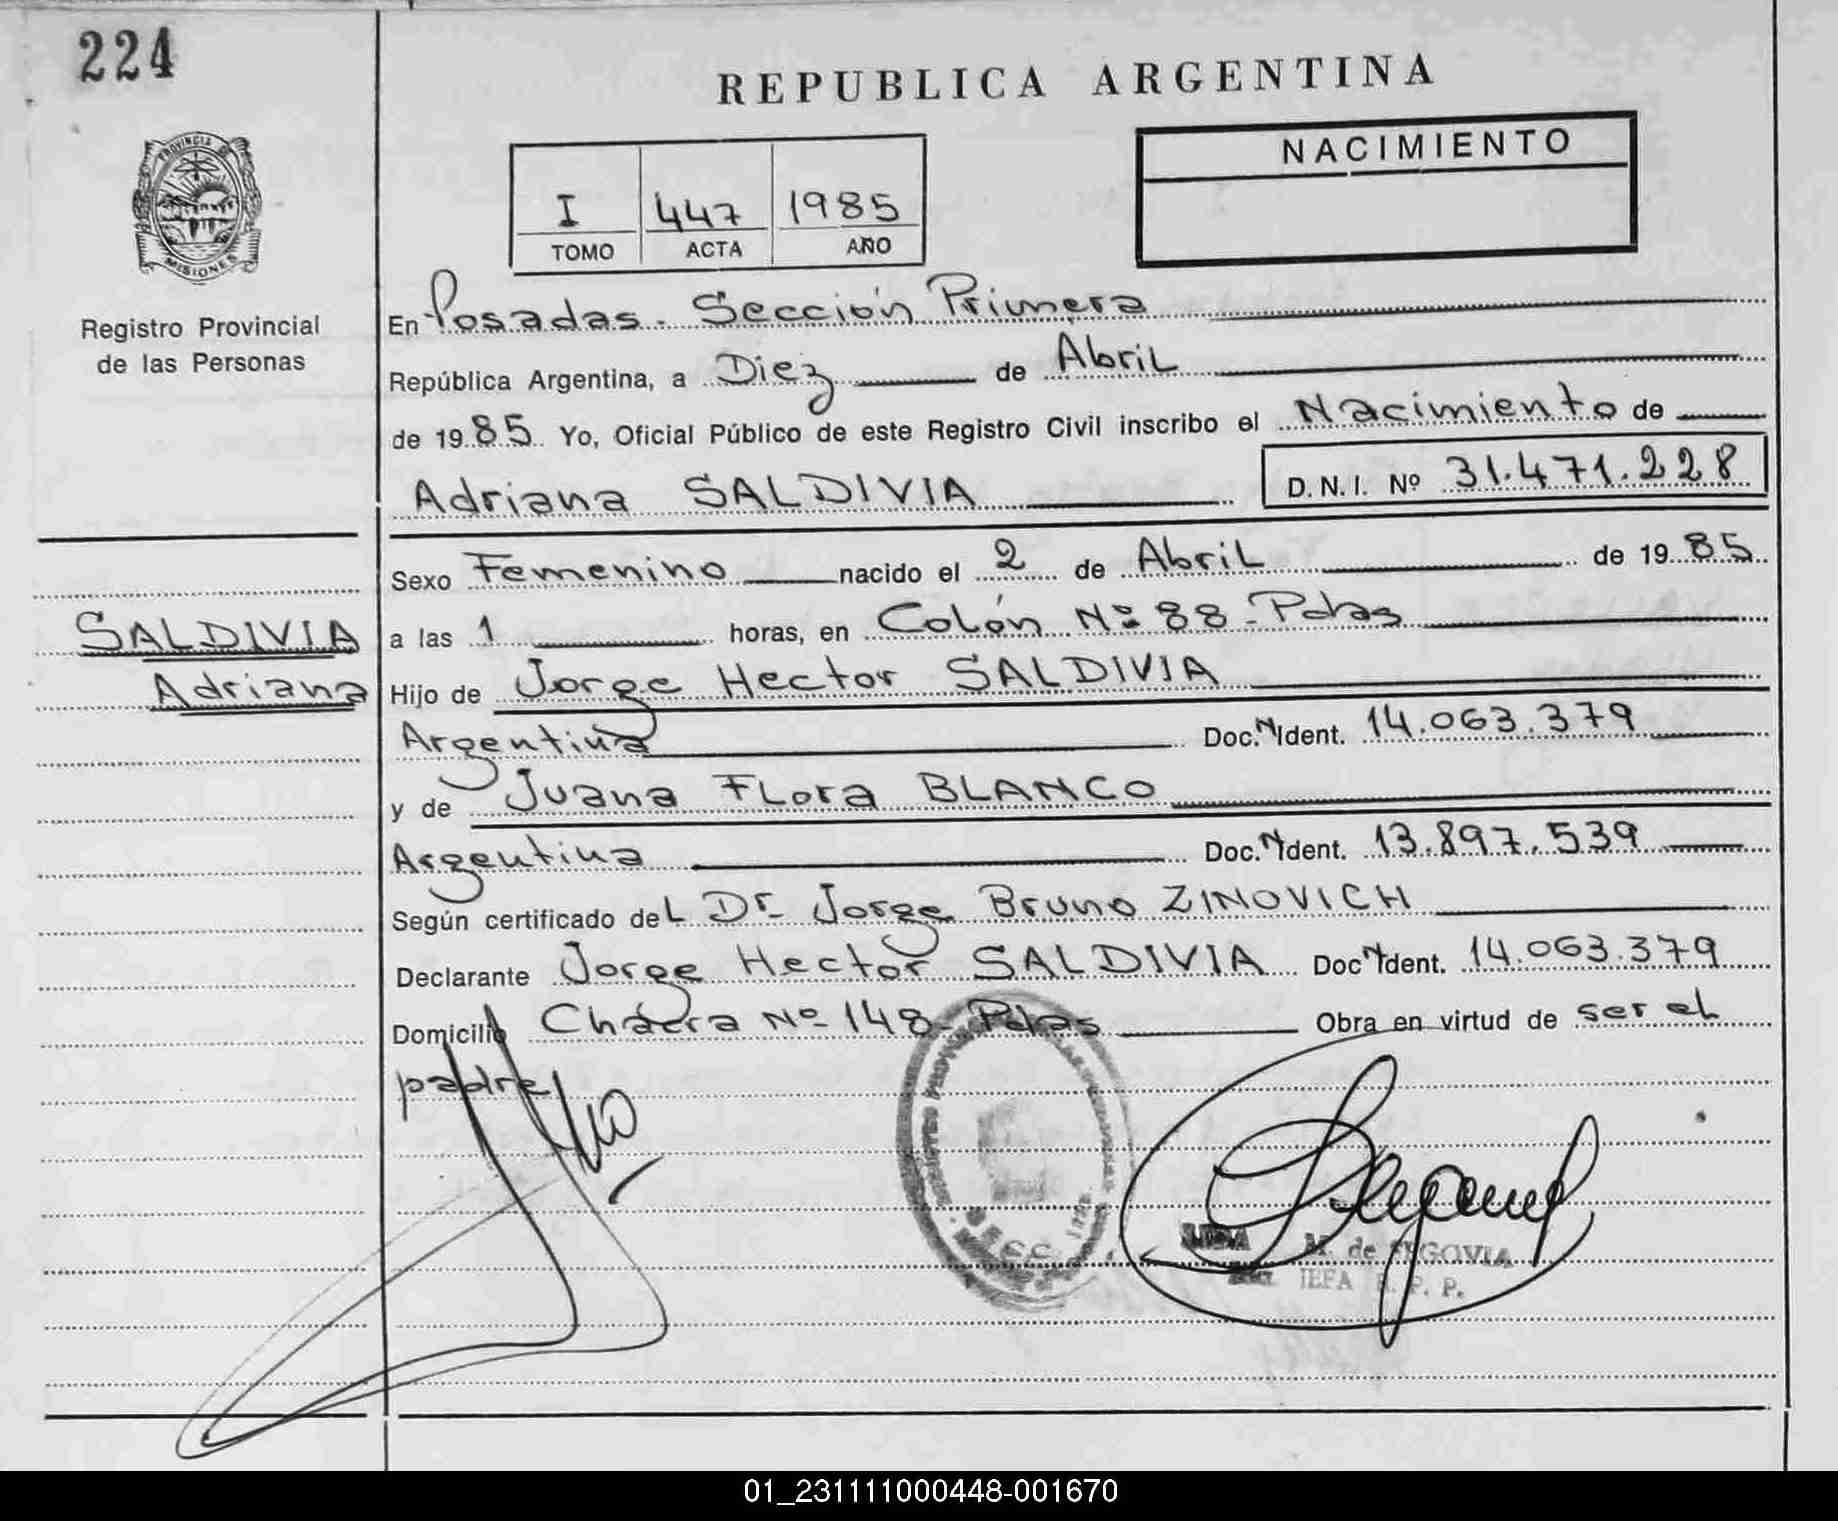 224
REPUBLICA ARGENTINA
PROVINCIA DE
MISIONES
Registro Provincial
de las Personas
I 447 1985
TOMO ACTA AÑO
NACIMIENTO
En Posadas. Sección Primera
República Argentina, a Diez de Abril
de 1985 Yo, Oficial Público de este Registro Civil inscribo el Nacimiento de
Adriana SALDIVIA D.N.I. Nº 31.471.228
Sexo Femenino nacido el 2 de Abril de 1985
SALDIVIA
Adriana
a las 1 horas, en Colón Nº 88 - Pdas
Hijo de Jorge Hector SALDIVIA
Argentina Doc. N Ident. 14.063.379
y de Juana Flora BLANCO
Argentina Doc. N Ident. 13.897.539
Según certificado del Dr. Jorge Bruno ZINOVICH
Declarante Jorge Hector SALDIVIA Doc N Ident. 14.063.379
Domicilio Chacra Nº 148 - Pdas Obra en virtud de ser el
padre
M. de SEGOVIA
JEFA R. P. P.
01_231111000448-001670